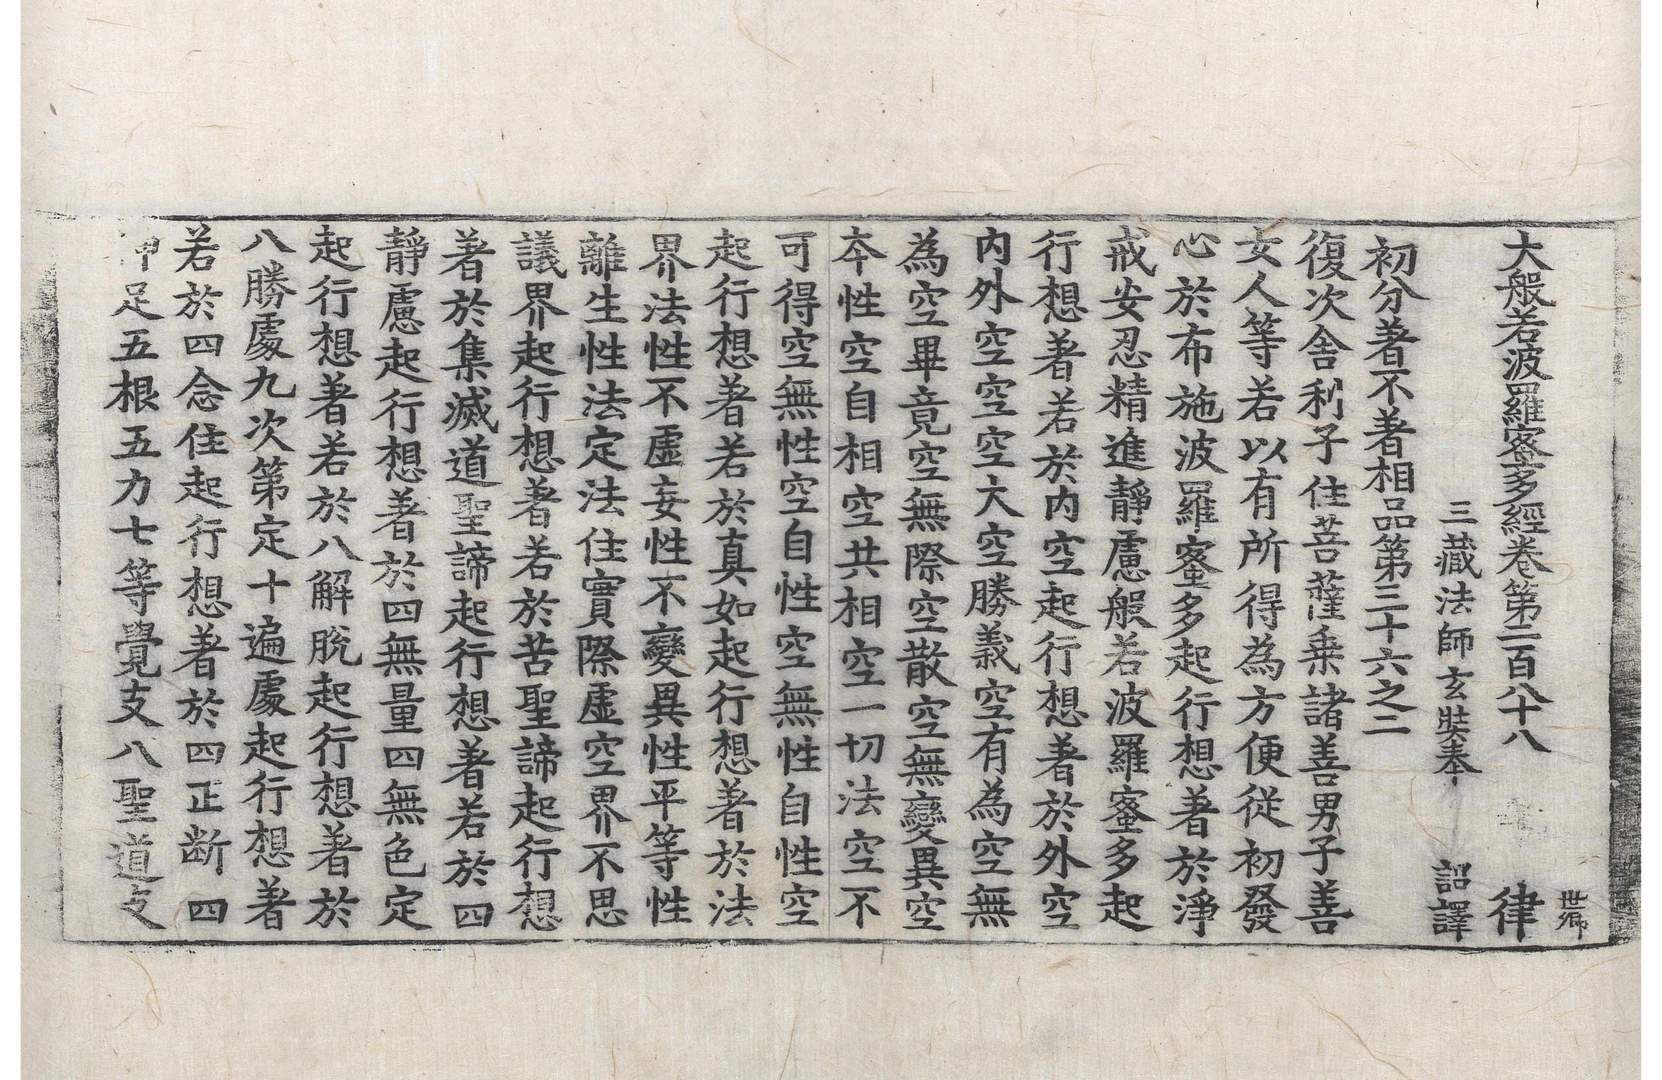 世卿
大般若波羅蜜多經卷第二百八十八 律
三藏法師玄奘奉 詔譯
初分著不著相品第三十六之二
復次舍利子住菩薩乗諸善男子善
女人等若以有所得為方便從初發
心於布施波羅蜜多起行想著於淨
戒安忍精進靜慮般若波羅蜜多起
行想著若於内空起行想著於外空
内外空空空大空勝義空有為空無
為空畢竟空無際空散空無變異空
本性空自相空共相空一切法空不
可得空無性空自性空無性自性空
起行想著若於真如起行想著於法
界法性不虛妄性不變異性平等性
離生性法定法住實際虛空界不思
議界起行想著若於苦聖諦起行想
著於集滅道聖諦起行想著若於四
靜慮起行想著於四無量四無色定
起行想著若於八解脫起行想著於
八勝處九次第定十遍處起行想著
若於四念住起行想著於四正断四
神足五根五力七等覺支八聖道支